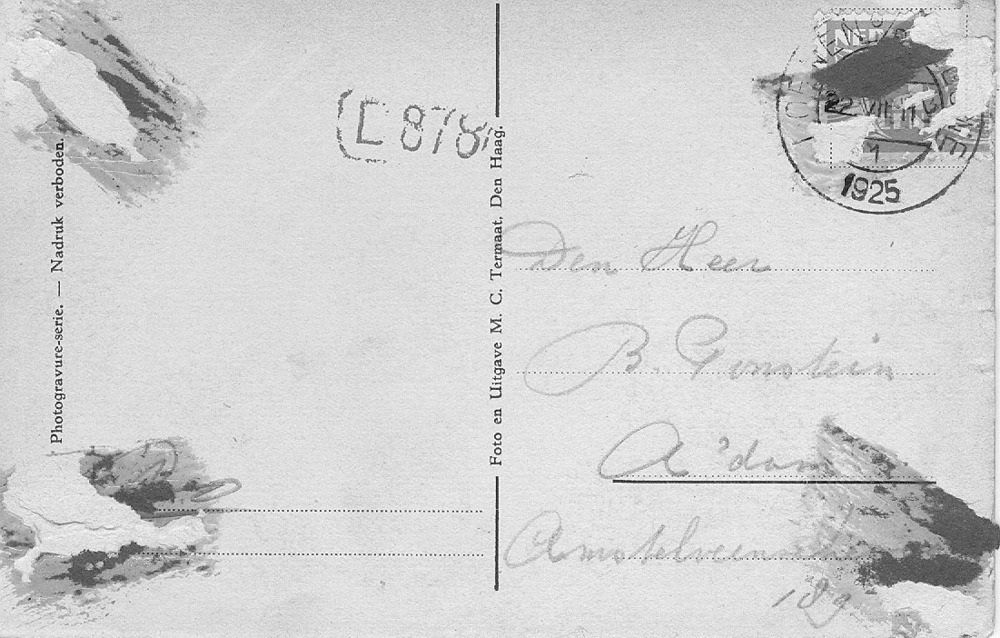 Photogravure-serie. — Nadruk verboden.
E 878
Foto en Uitgave M. C. Termaat, Den Haag.
NED
22 VII
1
1925
Den Heer
B.
A'dam
189